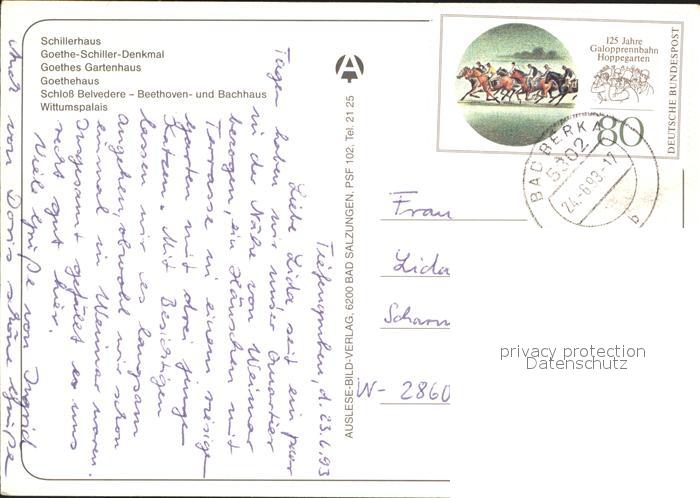 Schillerhaus
Goethe-Schiller-Denkmal
Goethes Gartenhaus
Goethehaus
Schloß Belvedere – Beethoven- und Bachhaus
Wittumspalais
Tiefengruben, d. 23.6.93
Liebe Lida seit ein paar
Tagen haben wir unser Quartier
in der Nähe von Weimar
bezogen, ein Häuschen mit
Terrasse in einem riesigen
Garten mit drei jungen
Katzen. Mit Besichtigen
lassen wir es langsam
angehen, obwohl wir schon
einmal in Weimar waren.
Insgesamt gefällt es uns
recht gut hier.
Viele Grüße von Ingrid
Auch von Doris schöne Grüße
AUSLESE-BILD-VERLAG, 6200 BAD SALZUNGEN, PSF 102, Tel. 21 25
125 Jahre
Galopprennbahn
Hoppegarten
80
DEUTSCHE BUNDESPOST
BAD BERKA
5302
24.-6.93-17
b
Frau
Lida
Scharn
W- 2860
privacy protection
Datenschutz